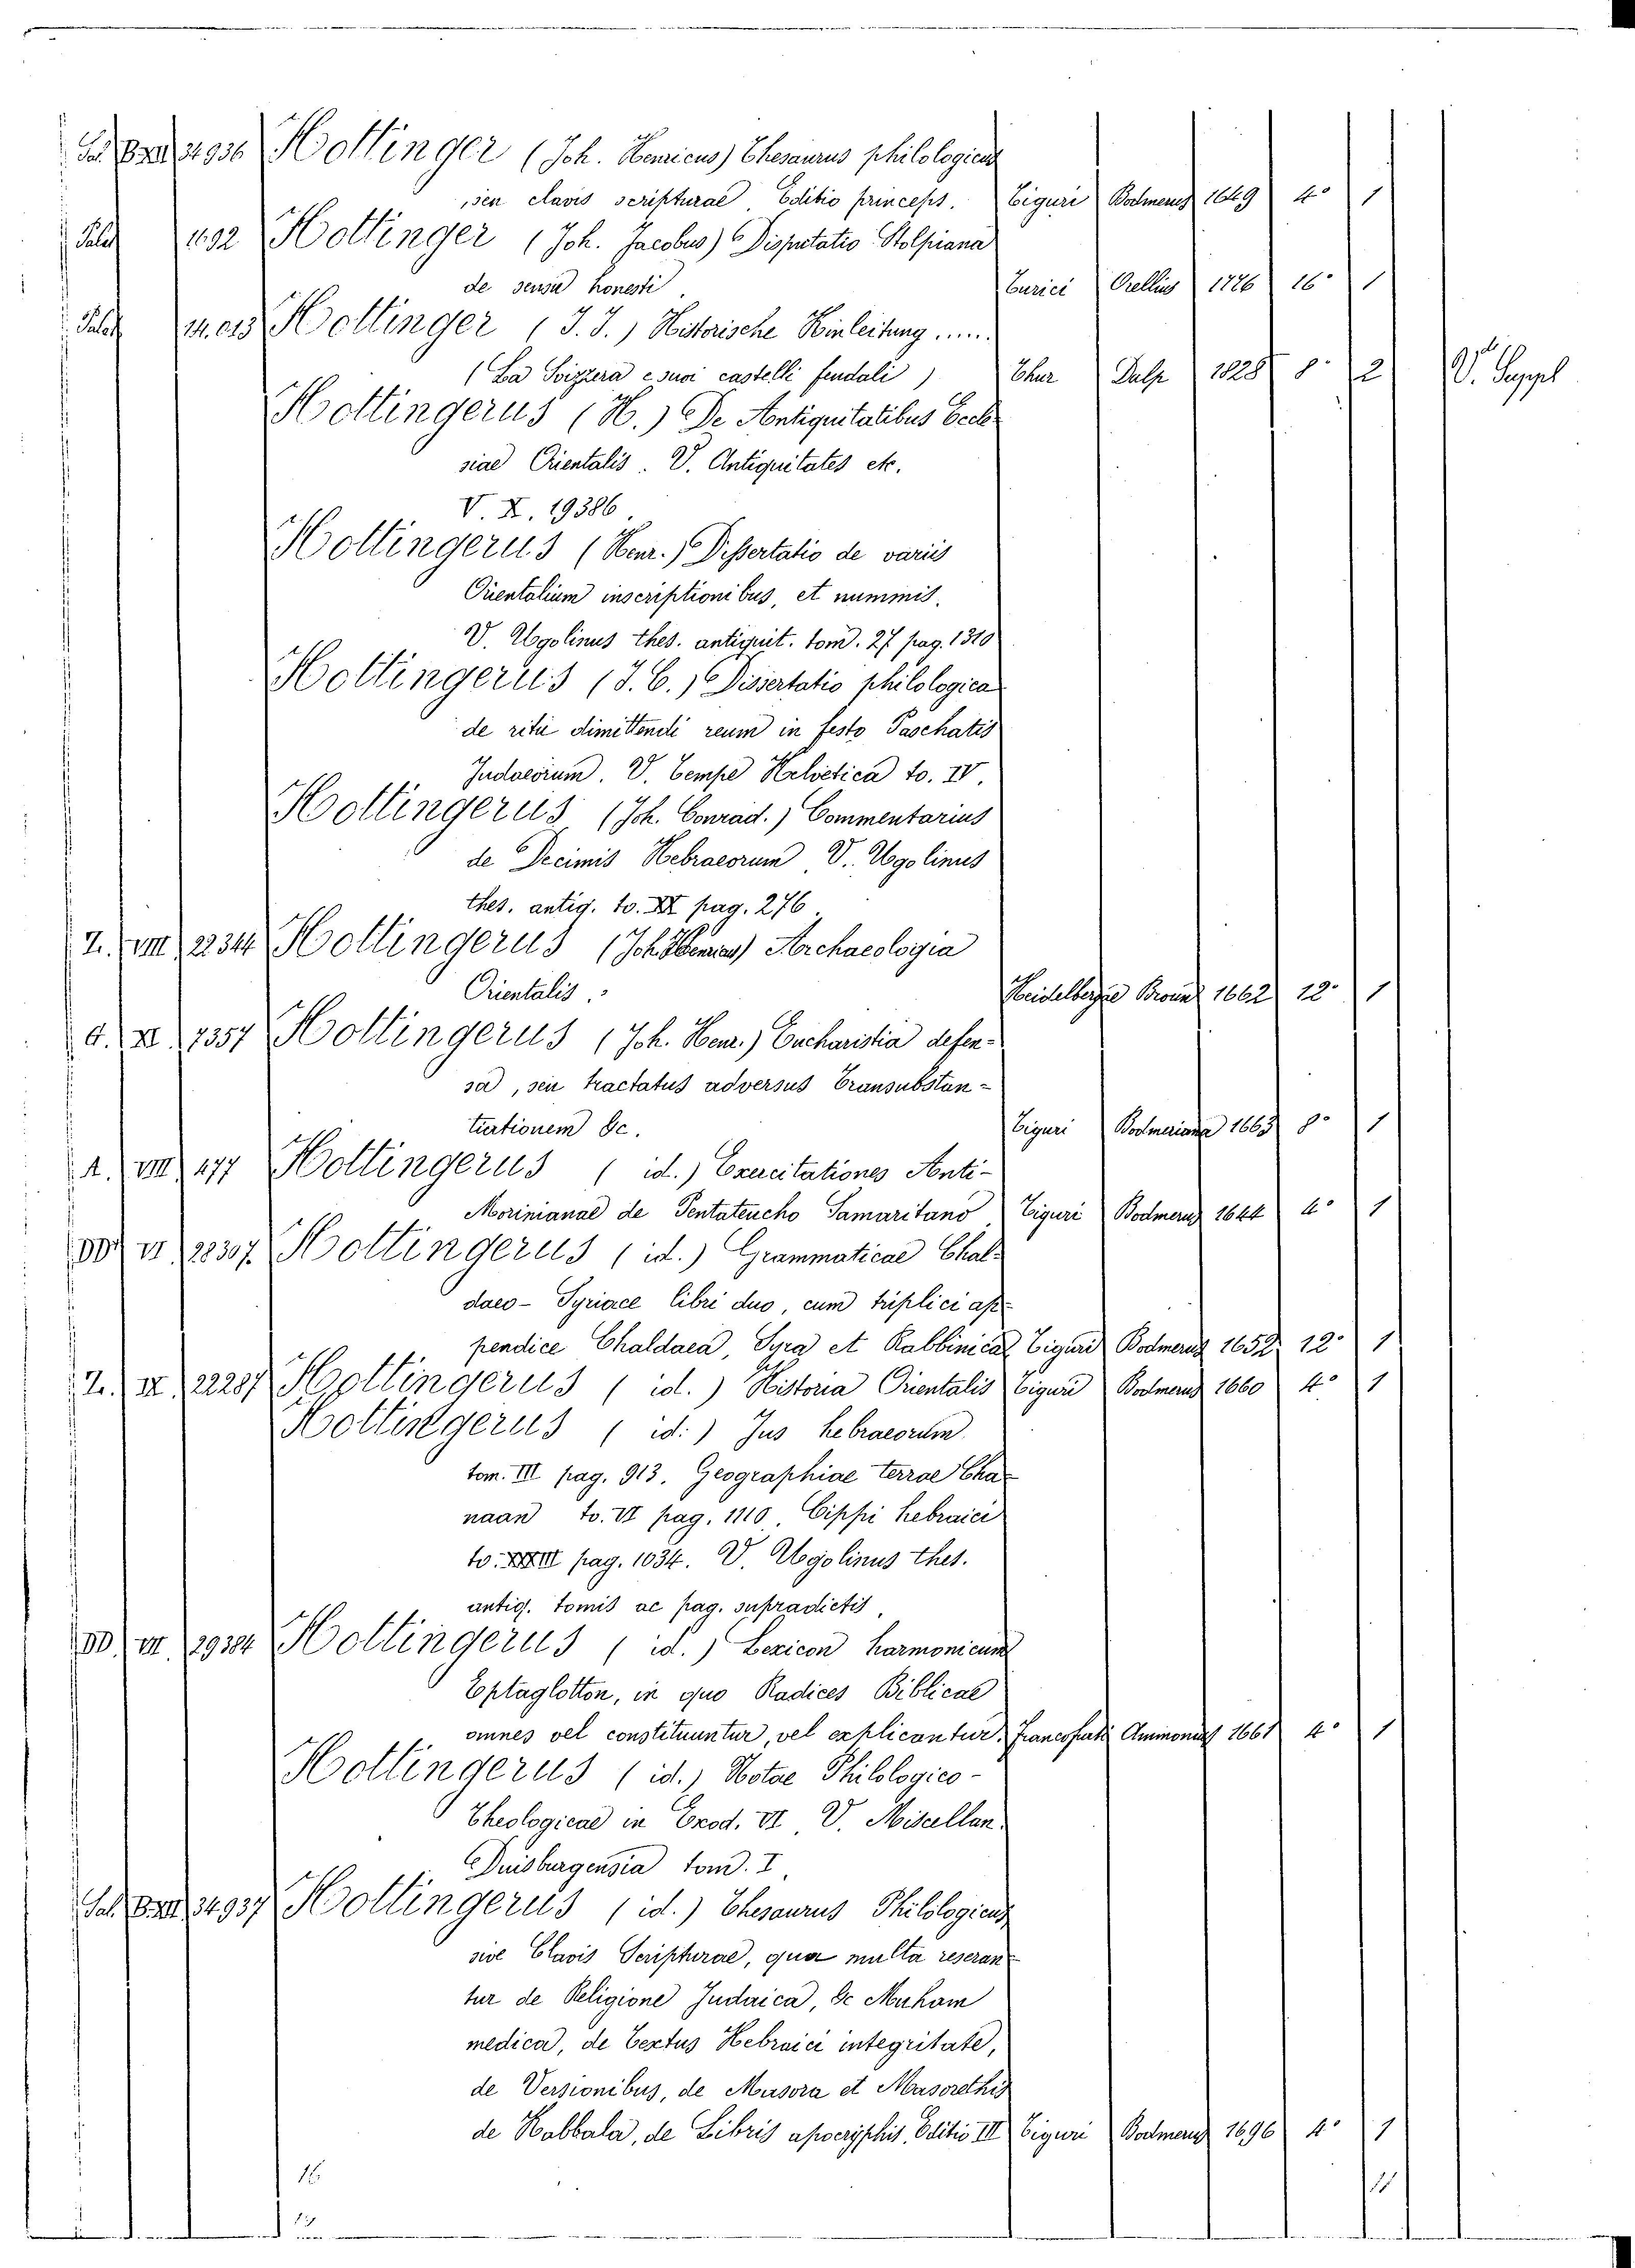 Sal. B. XXII 34936 Hottinger (Joh. Henricus) Thesaurus philologicus
, seu clavis scripturae. Editio princeps. Tiguri Bodmerus 1649 4° 1
Palch 1692 Hottinger (Joh. Jacobus) Disputatio Stolpiana
de sensu honesti Turici Orellius 1776 16° 1
Palch 14.013 Hottinger (J. J.) Historische Hinleitung .....
(La Svizzera e suoi castelli feudali) Chur Dalp 1828 8° 2 V. Suppl
Hottingerus (H.) De Antiquitatibus Eccle
siae Orientalis. V. Antiquitates etc.
V. X. 19386.
Hottingerus (Henr.) Dissertatio de variis
Orientalium inscriptionibus, et nummis.
V. Ugolinus thes. antiquit. tom. 27 pag. 1310
Hottingerus (J. C.) Dissertatio philologica
de ritu dimittendi reum in festo Paschatis
Judaeorum. V. Tempe Helvetica to. IV.
Hottingerus (Joh. Conrad.) Commentarius
de Decimis Hebraeorum V. Ugolinus
thes. antiq. to. XX pag. 276.
Z. VIII 22344 Hottingerus (Joh. Henricus) Archaeologia
Orientalis. Heidelbergae Broun 1662 12° 1
G. XI 7357 Hottingerus (Joh. Henr.) Eucharistia defen-
sa, seu tractatus adversus Transubstan-
tiationem &c. Tiguri Bodmeriana 1663 8° 1
A. VIII 477 Hottingerus (id.) Exercitationes Anti-
Morinianae de Pentateucho Samaritano Tiguri Bodmerus 1644 4° 1
DD VI 28307 Hottingerus (id.) Grammaticae Chal-
daeo-Syriace libri duo, cum triplici ap-
pendice Chaldaea, Syra et Rabbinica Tiguri Bodmerus 1652 12° 1
Z. IX 22287 Hottingerus (id.) Historia Orientalis Tiguri Bodmerus 1660 4° 1
Hottingerus (id.) Jus hebraeorum
tom. III pag. 913. Geographiae terrae Cha-
naan to. VI pag. 1110. Cippi hebraici
to. XXXIII pag. 1034. V. Ugolinus thes.
antiq. tomis ac pag. supradictis.
DD. VII 29384 Hottingerus (id.) Lexicon harmonicum
Eptaglotton, in quo Radices Biblicae
omnes vel constituuntur, vel explicantur. Francofurti Ammonius 1661 4° 1
Hottingerus (id.) Notae Philologico-
Theologicae in Exod. VI. V. Miscellan.
Duisburgensia tom. I.
Sal. B. XXII 34937 Hottingerus (id.) Thesaurus Philologicus
sive Clavis Scripturae, qua multa reseran-
tur de Religione Judaica, &c Muham
medica, de Textus Hebraici integritate,
de Versionibus, de Masora et Masorethis
de Kabbala, de Libris apocryphis. Editio III Tiguri Bodmerus 1696 4° 1
16